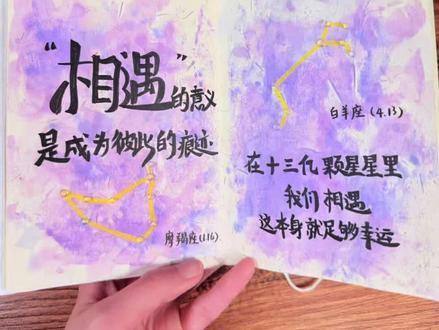 “相遇”的意义
是成为彼此的痕迹.
摩羯座(1.16)
白羊座(4.13)
在十三亿颗星星里
我们相遇
这本身就足够幸运